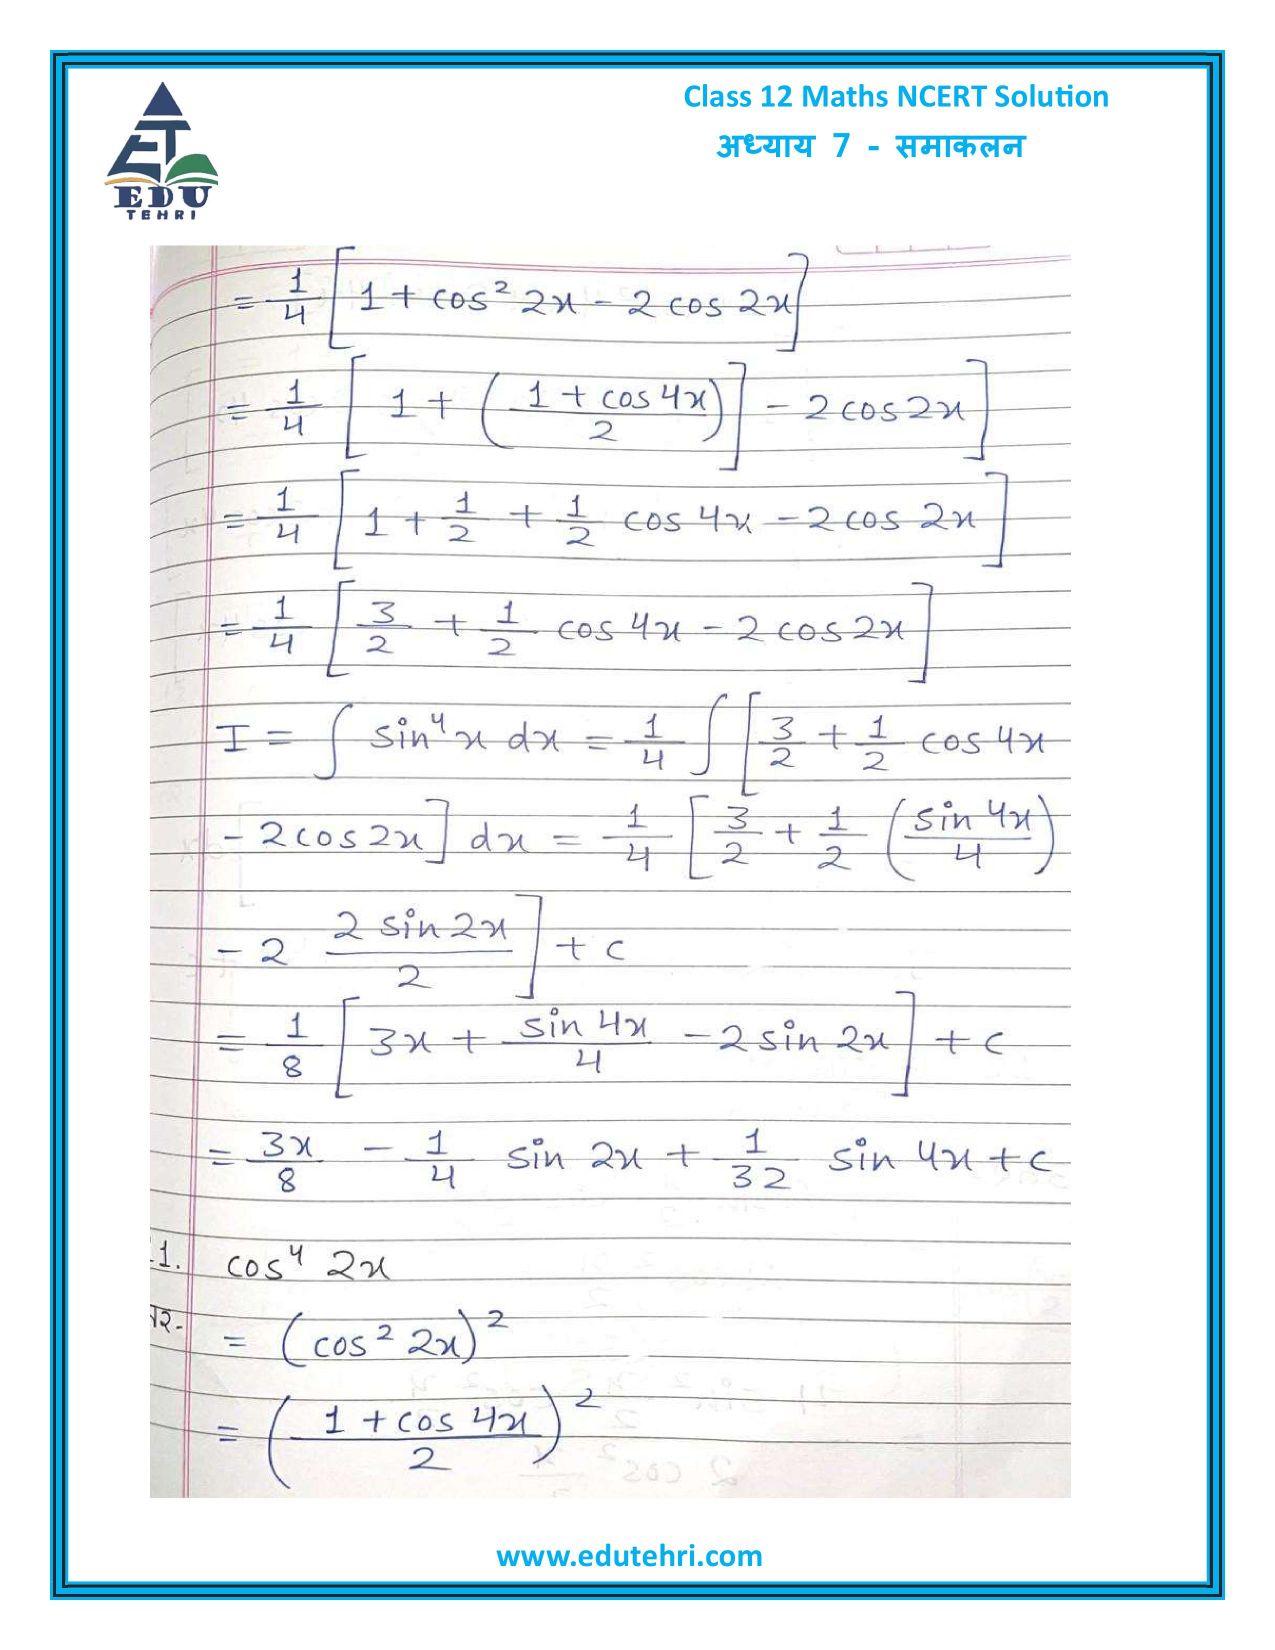 Class 12 Maths NCERT Solution
अध्याय 7 - समाकलन
EDU
TEHRI
= 1/4 [1 + cos² 2x - 2 cos 2x]
= 1/4 [1 + (1 + cos 4x / 2)] - 2 cos 2x]
= 1/4 [1 + 1/2 + 1/2 cos 4x - 2 cos 2x]
= 1/4 [3/2 + 1/2 cos 4x - 2 cos 2x]
I = ∫ sin⁴x dx = 1/4 ∫ [3/2 + 1/2 cos 4x
- 2 cos 2x] dx = 1/4 [3/2 + 1/2 (sin 4x / 4)
- 2 2 sin 2x / 2] + c
= 1/8 [3x + sin 4x / 4 - 2 sin 2x] + c
= 3x/8 - 1/4 sin 2x + 1/32 sin 4x + c
1. cos⁴ 2x
= (cos² 2x)²
= (1 + cos 4x / 2)²
www.edutehri.com